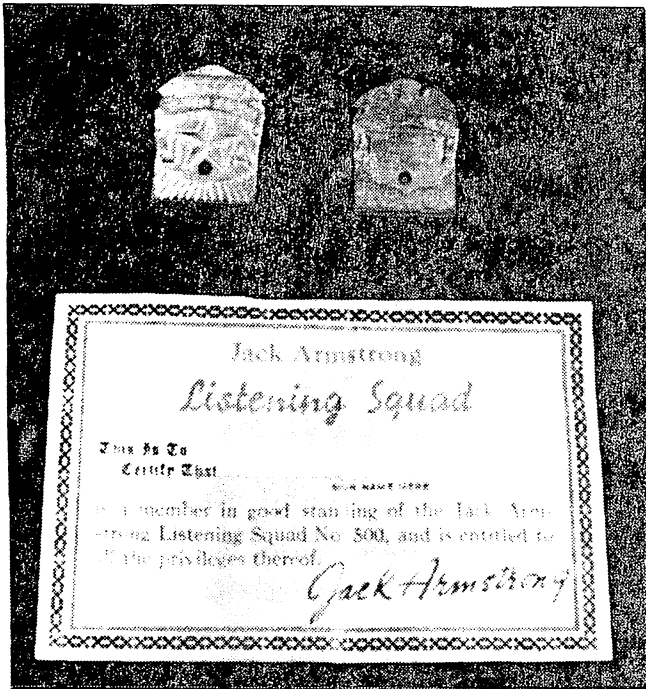 Jack Armstrong
Listening Squad
This Is To
Certify That
NAME HERE
a member in good standing of the Jack Arm-
strong Listening Squad No. 500, and is entitled to
all the privileges thereof.
Jack Armstrong